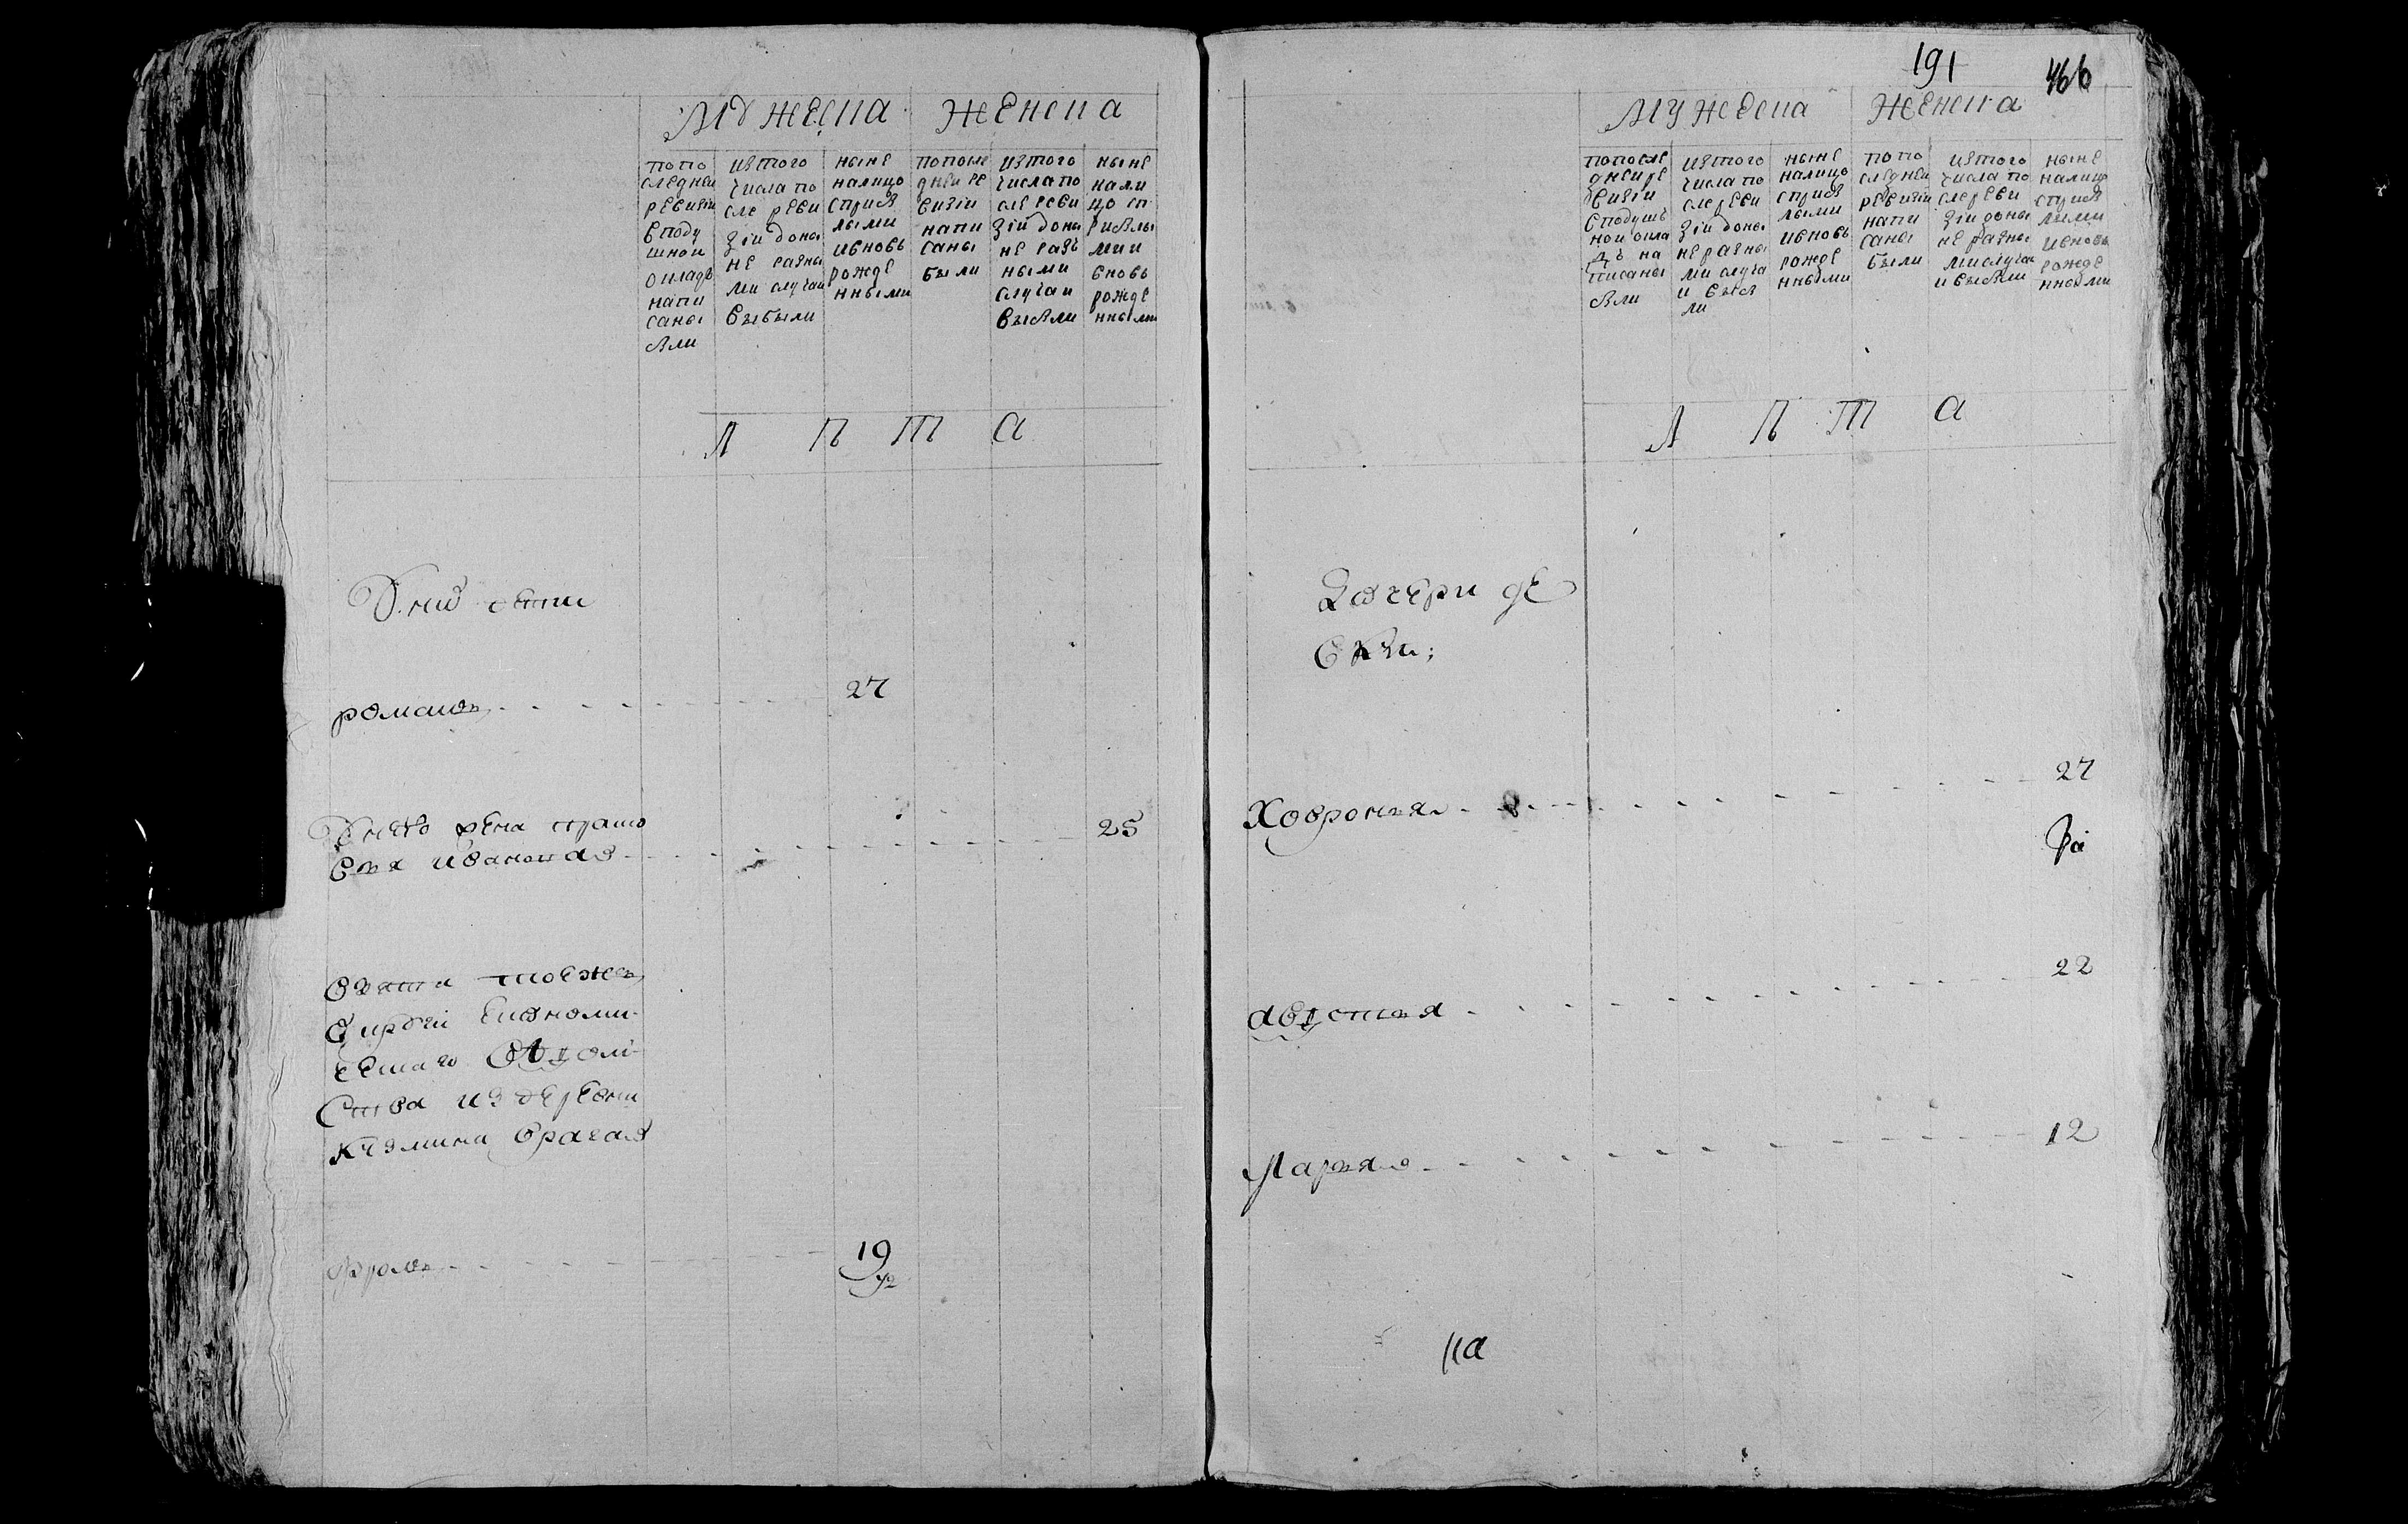 Мужеска Женска
попо
следней
ревизiи
вподу
шной
окладъ
напи
саны
были
изтого
числа по
сле реви
зiи донынѣ
не разны
ми случаи
выбыли
ныне
налицо
сприбы
лыми
ивновь
рожде
нными
попосле
дней ре
визiи
напи
саны
были
изтого
числа по
сле реви
зiи доны
не разъ
ными
случаи
выбыли
ныне
нали
цо сп
рибылы
ми и
вновь
рожде
нными
Л ѣ т а
У них дети
романъ 27
У него жена праско
вья иванова 25
взята тоежъ
Економи
ческаго Ведом
ства из деревни
фролъ 19
191
466
Мужеска Женска
попосле
дней ре
визiи
вподуш
ной окла
дъ на
писаны
были
изтого
числа по
сле реви
зiи доны
не разны
ми случа
и выбы
ли
ныне
налицо
сприбы
лыми
ивновь
рожде
нными
попо
следней
ревизiи
напи
саны
были
изтого
числа по
сле реви
зiи доны
не разны
ми случаи
и выбыли
ныне
налицо
сприбы
лыми
ивновь
рожде
нными
Л ѣ т а
Дочери де
вки;
Ховронья 27
авдотья 22
Марья 12